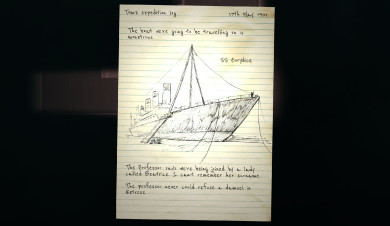 Tom's expedition log 17th May 1901
The boat we're going to be travelling on is
monstrous.
SS Eurydice
The Professor said we're being joined by a lady
called Beatrice. I can't remember her surname.
The professor never could refuse a damsel in
distress.